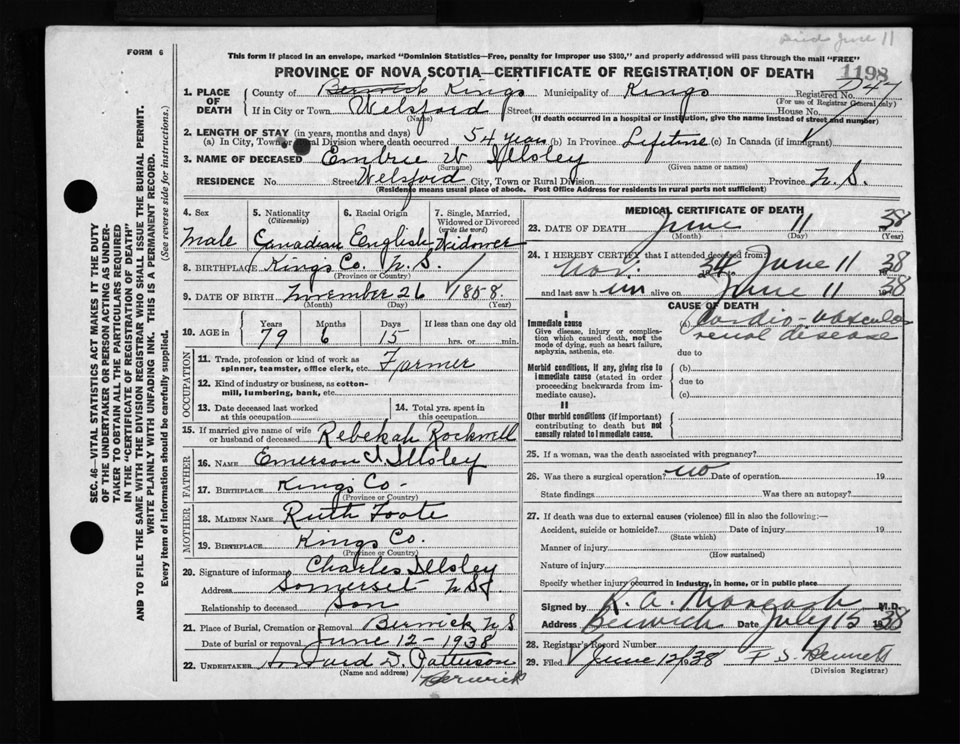 Died June 11
FORM 6
This form if placed in an envelope, marked "Dominion Statistics—Free, penalty for improper use $300," and properly addressed will pass through the mail "FREE"
PROVINCE OF NOVA SCOTIA—CERTIFICATE OF REGISTRATION OF DEATH
1198
1. PLACE OF DEATH
County of Berwick Kings Municipality of Kings Registered No. 247
(For use of Registrar General only)
If in City or Town Welsford Street House No.
(Name) (If death occurred in a hospital or institution, give the name instead of street and number)
2. LENGTH OF STAY (in years, months and days)
(a) In City, Town or Rural Division where death occurred 54 years (b) In Province Lifetime (c) In Canada (if immigrant)
3. NAME OF DECEASED Embree W Illsley
(Surname) (Given name or names)
RESIDENCE No. Street Welsford City, Town or Rural Division Province N.S.
(Residence means usual place of abode. Post Office Address for residents in rural parts not sufficient)
4. Sex
Male
5. Nationality
(Citizenship)
Canadian
6. Racial Origin
English
7. Single, Married, Widowed or Divorced
(write the word)
Widower
8. BIRTHPLACE Kings Co. N.S.
(Province or Country)
9. DATE OF BIRTH November 26 1858.
(Month) (Day) (Year)
10. AGE in
Years Months Days If less than one day old
79 6 15 hrs. or min.
OCCUPATION
11. Trade, profession or kind of work as spinner, teamster, office clerk, etc. Farmer
12. Kind of industry or business, as cotton-mill, lumbering, bank, etc.
13. Date deceased last worked at this occupation
14. Total yrs. spent in this occupation
15. If married give name of wife or husband of deceased Rebekah Rockwell
FATHER
16. NAME Emerson I. Illsley
17. BIRTHPLACE Kings Co.
(Province or Country)
MOTHER
18. MAIDEN NAME Ruth Foote
19. BIRTHPLACE Kings Co.
(Province or Country)
20. Signature of informant Charles Illsley
Address Somerset N.S.
Relationship to deceased Son
21. Place of Burial, Cremation or Removal Berwick N S
Date of burial or removal June 12 - 1938
22. UNDERTAKER D. Patterson
(Name and address) Berwick
MEDICAL CERTIFICATE OF DEATH
23. DATE OF DEATH June 11 1938
(Month) (Day) (Year)
24. I HEREBY CERTIFY that I attended deceased from:
Nov. 34 to June 11 1938
and last saw h im alive on June 11 1938
CAUSE OF DEATH
I
Immediate cause
Give disease, injury or complication which caused death, not the mode of dying, such as heart failure, asphyxia, asthenia, etc.
(a) Cardio-vascular
renal disease
due to
Morbid conditions, if any, giving rise to immediate cause (stated in order proceeding backwards from immediate cause).
(b)
due to
(c)
II
Other morbid conditions (if important) contributing to death but not causally related to immediate cause.
25. If a woman, was the death associated with pregnancy?
26. Was there a surgical operation? no Date of operation 19
State findings Was there an autopsy?
27. If death was due to external causes (violence) fill in also the following:
Accident, suicide or homicide? Date of injury 19
(State which)
Manner of injury
(How sustained)
Nature of injury
Specify whether injury occurred in industry, in home, or in public place
Signed by R. A. M.D.
Address Berwick Date July 15 1938
28. Registrar's Record Number
29. Filed June 12/38 F. S. Bennett
(Division Registrar)
SEC. 46—VITAL STATISTICS ACT MAKES IT THE DUTY
OF THE UNDERTAKER OR PERSON ACTING AS UNDER-
TAKER TO OBTAIN ALL THE PARTICULARS REQUIRED
IN THE "CERTIFICATE OF REGISTRATION OF DEATH"
AND TO FILE THE SAME WITH THE DIVISION REGISTRAR WHO SHALL ISSUE THE BURIAL PERMIT.
WRITE PLAINLY WITH UNFADING INK. THIS IS A PERMANENT RECORD.
Every item of information should be carefully supplied. (See reverse side for instructions.)